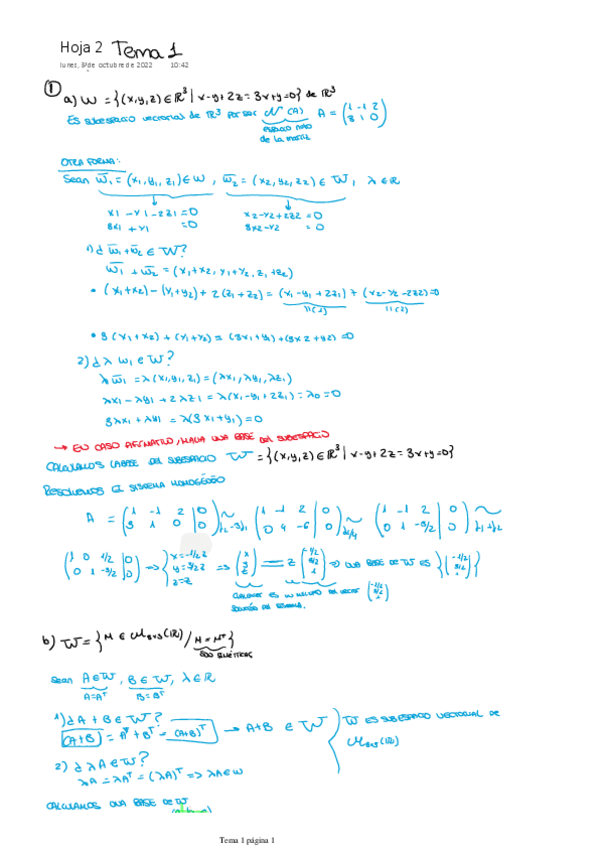 Hoja 2 Tema 1
lunes, 3 de octubre de 2022 10:42
① a) W = {(x,y,z) ∈ ℝ³ | x-y+2z = 3x+y=0} de ℝ³
Es subespacio vectorial de ℝ³ por ser N(A) A = (1 -1 2 / 3 1 0)
espacio nulo
de la matriz
OTRA FORMA:
Sean w̄₁ = (x₁, y₁, z₁) ∈ W, w̄₂ = (x₂, y₂, z₂) ∈ W, λ ∈ ℝ
x₁ - y₁ - 2z₁ = 0 x₂ - y₂ + 2z₂ = 0
3x₁ + y₁ = 0 3x₂ - y₂ = 0
1) ¿ w̄₁ + w̄₂ ∈ W?
w̄₁ + w̄₂ = (x₁+x₂, y₁+y₂, z₁+z₂)
• (x₁+x₂) - (y₁+y₂) + 2(z₁+z₂) = (x₁-y₁+2z₁) + (x₂-y₂-2z₂)=0
• 3(x₁+x₂) + (y₁+y₂) = (3x₁+y₁) + (3x2+y2) = 0
2) ¿ λ w₁ ∈ W?
λw̄₁ = λ(x₁,y₁,z₁) = (λx₁, λy₁, λz₁)
λx₁ - λy₁ + 2λz₁ = λ(x₁-y₁+2z₁) = λ0 = 0
3λx₁ + λy₁ = λ(3x₁+y₁) = 0
→ EN CASO AFIRMATIVO, HALLA UNA BASE del SUBESPACIO
CALCULAMOS LA BASE del SUBESPACIO W = {(x,y,z) ∈ ℝ³ | x-y+2z = 3x+y=0}
RESOLVEMOS EL SISTEMA HOMOGÉNEO
A = (1 -1 2 | 0 / 3 1 0 | 0) ~ f2-3f1 (1 -1 2 | 0 / 0 4 -6 | 0) ~ f2/4 (1 -1 2 | 0 / 0 1 -3/2 | 0) ~ f1+f2
(1 0 1/2 | 0 / 0 1 -3/2 | 0) → {x = -1/2 z / y = 3/2 z / z = z ⇒ (x / y / z) = z (-1/2 / 3/2 / 1) ⇒ UNA BASE DE W ES {(-1/2 / 3/2 / 1)}
b) W = {M ∈ M₃ₓ₃(ℝ) / M = Mᵀ}
SON SIMÉTRICAS
Sean A ∈ W, B ∈ W, λ ∈ ℝ
A = Aᵀ B = Bᵀ
1) ¿ A + B ∈ W? W ES SUBESPACIO VECTORIAL DE
(A+B) = Aᵀ + Bᵀ = (A+B)ᵀ → A+B ∈ W M₃ₓ₃(ℝ)
2) ¿ λA ∈ W?
λA = λAᵀ = (λA)ᵀ => λA ∈ W
CALCULAMOS UNA BASE DE W
Tema 1 página 1